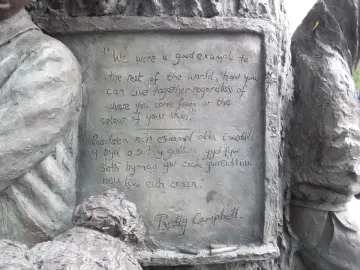 "We were a good example to
the rest of the world, how you
can live together regardless of
where you come from or the
colour of your skin."
esiampl i weddill
y byd o sut y gallwn gyd fyw
beth bynnag yw eich
neu liw eich croen.
Betty Campbell